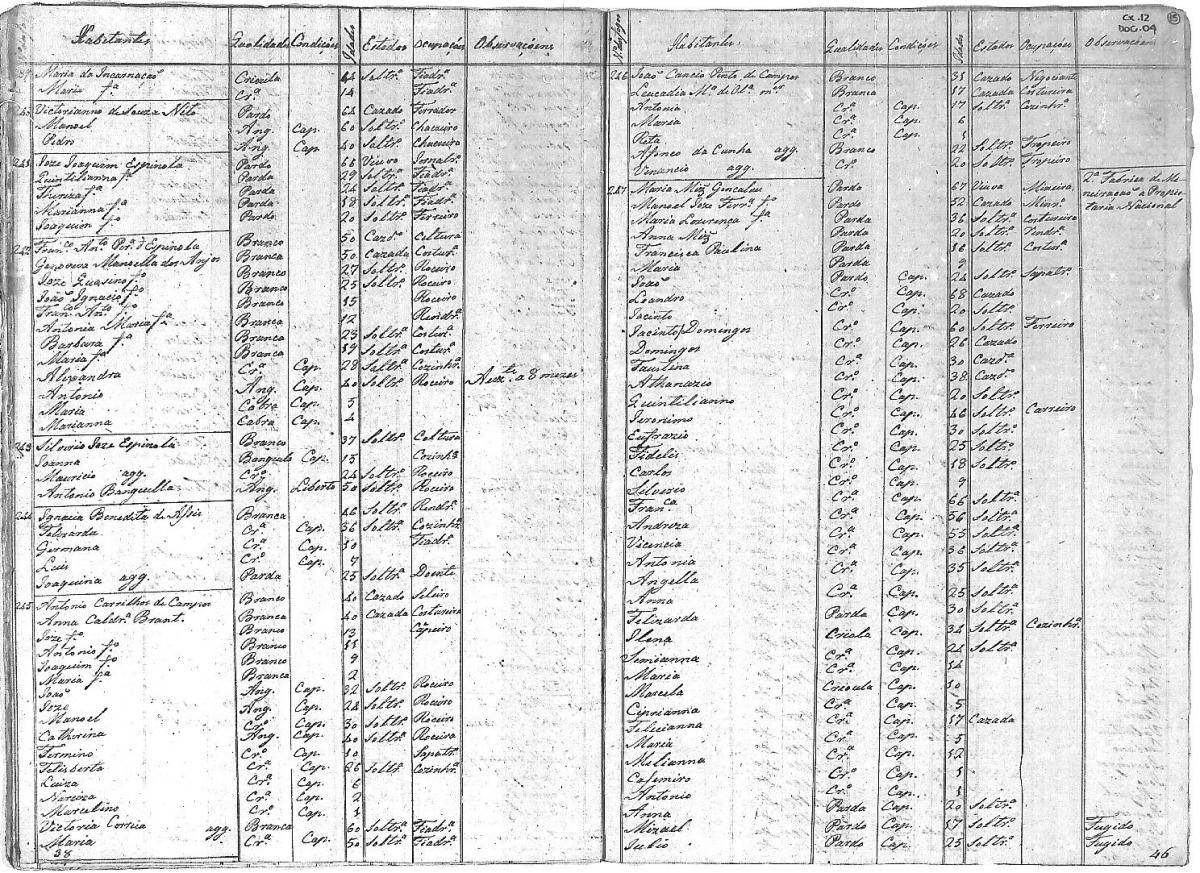 Habitantes Qualidades Condições Idades Estados Ocupações Observaçoens
Maria da Incarnação Crioula 44 Soltrª Fiadrª
Maria fª Crª 14 Fiadrª
Victorianno de Souza Neto Pardo 64 Cazado Ferrador
Manoel Ang. Cap. 60 Soltrº Chacueiro
Pedro Ang. Cap. 40 Soltrº Chacueiro
241 Joze Joaquim Espinola Pardo 66 Viuvo Jornalrº
Quintilianna fª Parda 29 Soltrª Fiadrª
Thereza fª Parda 24 Soltrª Fiadrª
Marianna fª Parda 18 Soltrª Fiadrª
Joaquim fº Pardo 20 Soltrº Ferreiro
242 Franco Anto Perª d'Espinola Branco 50 Cazdo Coltura
Genoveva Marcella dos Anjos Branca 50 Cazada Costurª
Joze fº Branco 27 Soltrº Roceiro
João Ignacio fº Branco 25 Soltrº Roceiro
Franco Anto fº Branco 15 Roceiro
Antonia Maria fª Branca 12 Rendrª
Barbara fª Branca 23 Soltrª Costurª
Maria fª Branca 19 Soltrª Costurª
Alexandra Crª Cap. 28 Soltrª Cozinhrª
Antonio Ang. Cap. 40 Soltrº Roceiro Auzte a 8 mezes
Maria Cabra Cap. 5
Marianna Cabra Cap. 4
243 Silverio Joze Espinola Branco 37 Soltrº Coltura
Joanna Banguela Cap. 15 Cozinhª
Mauricio agg. Crº 24 Soltrº Roceiro
Antonio Banguella Ang. Liberto 50 Soltrº Roceiro
244 Ignacia Benedita de Assis Branca 46 Soltrª Rendrª
Felizarda Crª Cap. 36 Soltrª Cozinhrª
Germana Crª Cap. 10 Fiadrª
Luis Crº Cap. 7
Joaquina agg. Parda 25 Soltrª Doente
245 Antonio Carrilhos de Campos Branco 40 Cazado Seleiro
Anna Caldrª Brant. Branca 40 Cazada Costureira
Joze fº Branco 13
Antonio fº Branco 11
Joaquim fº Branco 9
Maria fª Branca 2
João Ang. Cap. 32 Soltrº Roceiro
Joze Ang. Cap. 24 Soltrº Roceiro
Manoel Crº Cap. 30 Soltrº Roceiro
Catherina Ang. Cap. 40 Soltrª Roceira
Fermino Crº Cap. 10 Sapatrº
Felisberta Crª Cap. 26 Soltrª Cozinhrª
Luiza Crª Cap. 6
Narciza Crª Cap. 2
Marcelino Crº Cap. 1
Victoria Correia agg. Branca 60 Soltrª Fiadrª
Maria Crª Cap. 50 Soltrª Fiadrª
38
CX.12
DOC.04
15
Nos de fogos Habitantes Qualidades Condições Idades Estados Ocupações Observações
246 João Cancio Pinto de Campos Branco 31 Cazado Negociante
Leucadia Mª de Olª Branca 17 Cazada Costureira
Antonia Crª Cap. 17 Soltrª Cozinhrª
Maria Crª Cap. 6
Rita Crª Cap. 1
Afonso da Cunha agg. Branco 22 Soltrº Tropeiro
Venancio agg. Crº 20 Soltrº Tropeiro
247 Maria Miz Gonçalves Parda 67 Viuva Mineira 2ª Fabrica de Mineiração a Propietaria Nacional
Manoel Joze Ferrª fº Pardo 52 Cazado Minrº
Maria Lourença fª Parda 36 Soltrª Costureira
Anna Miz Parda 20 Soltrª Rendrª
Francisca Paulina Parda 16 Soltrª Costurª
Maria Parda 9
João Pardo Cap. 24 Soltrº Sapatrº
Leandro Crº Cap. 68 Cazado
Jacinto Crº Cap. 20 Soltrº
Jacinto/Domingos Crº Cap. 60 Soltrº Ferreiro
Domingos Crº Cap. 26 Cazado
Faustina Crª Cap. 30 Cazdª
Athanazio Crº Cap. 38 Cazdº
Quintilianno Crº Cap. 20 Soltrº
Jeronimo Crº Cap. 46 Soltrº Carreiro
Eufrazio Crº Cap. 30 Soltrº
Fidelis Crº Cap. 25 Soltrº
Carlos Crº Cap. 18 Soltrº
Silverio Crº Cap. 9
Franca Crª Cap. 66 Soltrª
Andreza Crª Cap. 56 Soltrª
Vicencia Crª Cap. 55 Soltrª
Antonia Crª Cap. 36 Soltrª
Angella Crª Cap. 35 Soltrª
Anna Crª Cap. 25 Soltrª
Felizarda Parda Cap. 30 Soltrª
Ilena Creola Cap. 34 Soltrª Cozinhrª
Semianna Crª Cap. 24 Soltrª
Maria Crª Cap. 14
Marcela Creoula Cap. 10
Ciprianna Crª Cap. 5
Felicianna Crª Cap. 17 Cazada
Maria Crª Cap. 5
Melianna Crª Cap. 12
Casemiro Crº Cap. 1
Antonio Crº Cap. 1
Anna Parda Cap. 20 Soltrª
Mizael Pardo Cap. 17 Soltrº Fugido
Julio Pardo Cap. 25 Soltrº Fugido
46